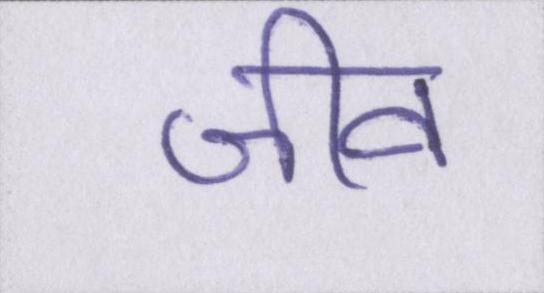 जीव